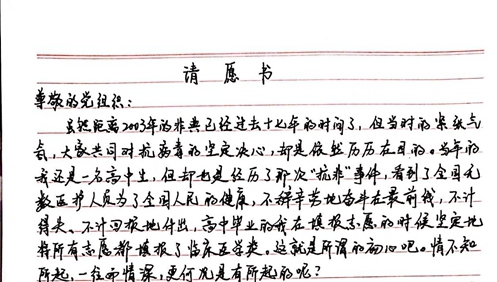 请愿书
尊敬的党组织:
虽然距离2003年的非典已经过去十七年的时间了,但当时的紧张气
氛,大家共同对抗病毒的坚定决心,却是依然历历在目的。当年的
我还是一名高中生,但却也是经历了那次“抗非”事件,看到了全国无
数医护人员为了全国人民的健康,不辞辛苦地奋斗在最前线,不计
得失、不计回报地付出,高中毕业的我在填报志愿的时候坚定地
将所有志愿都填报了临床医学类。这就是所谓的初心吧。情不知
所起,一往而情深,更何况是有所起的呢?